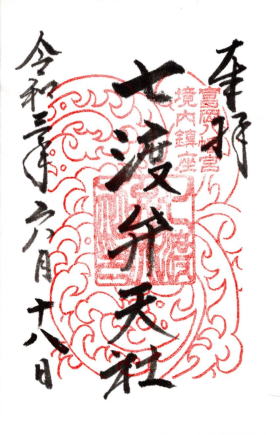 奉拝
富岡八幡宮
境内鎮座
七渡弁天社
令和二年六月十八日